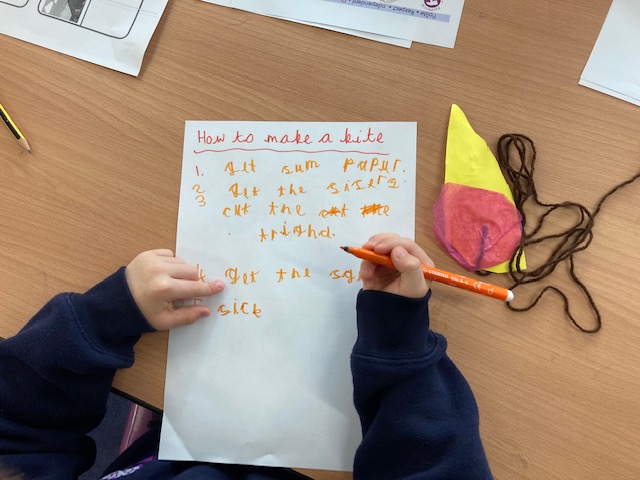 How to make a kite
1. get sum papur.
2 get the sisers.
3 cut the
trighd.
get the
sick